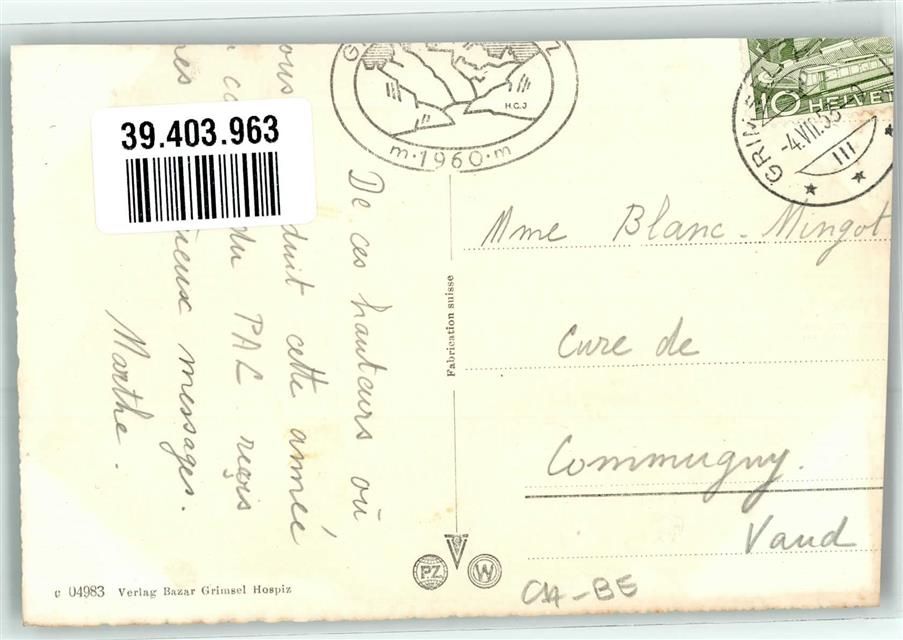 39.403.963
H.C.J
m · 1960 · m
10 HELVET
GRIM
-4.VII.55
III
De ces hauteurs où
duit cette année
du PAL reçois
eux messages.
Marthe.
Fabrication suisse
Mme Blanc-Mingot
Cure de
Commugny.
Vaud
PZ
W
CH-BE
c 04983 Verlag Bazar Grimsel Hospiz